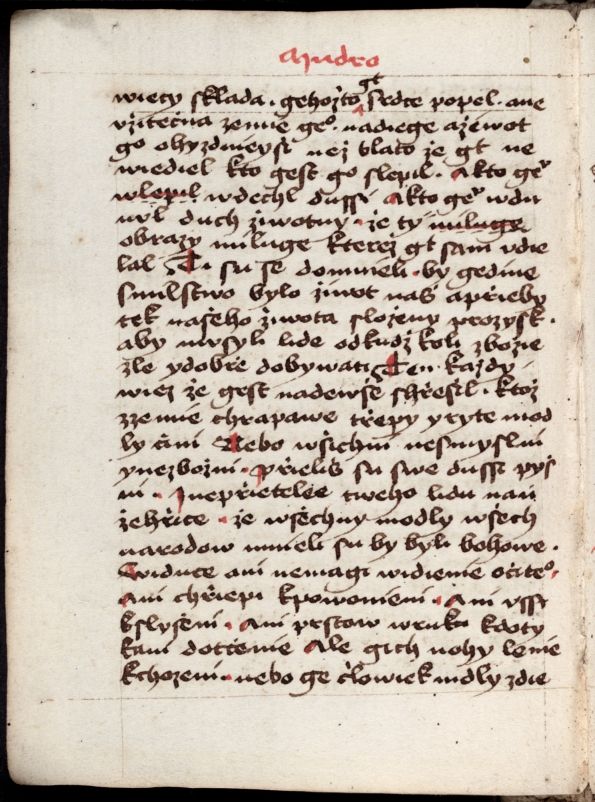 Mudro
wiecy sklada · gehožto gt srdce popel · ane
vžitečna zemie geo · nadiege a žiwot
go ohyzdnieyši než blato že gt ne
wiediel kto gest go slepil · A kto ger
wlepil wdechl dussi A kto ger wdu
nul duch žiwotny · že ty miluge
obrazy miluge kterez gt sam vdie
lal Ti su se domnieli · by gedine
smilstwo bylo žiwot naš a přieby
tek našeho žiwota složeny prozysk ·
aby musyli lide odkudž koli zbožie
zle y dobře dobywati Ten každy
wiez že gest nadewše shřešil · ktož
z zemie chrapawe třepy y ryte mod
ly čini Nebo wšichni nesmyslni
y nezbožni · přieliš su swe dusse pyš
ni · J nepřietelee tweho lidu nau
žehřice · že wšechny modly wšech
narodow mnieli su by byli bohowe ·
Widuce ani nemagi widienie očiteo ·
Ani chřiepi k powonieni · Ani vssi
k slyšeni · Ani prstow w ruku k doty
kani dotčenie Ale gich nohy lenie
k chozeni · nebo ge člowiek mdly zdie